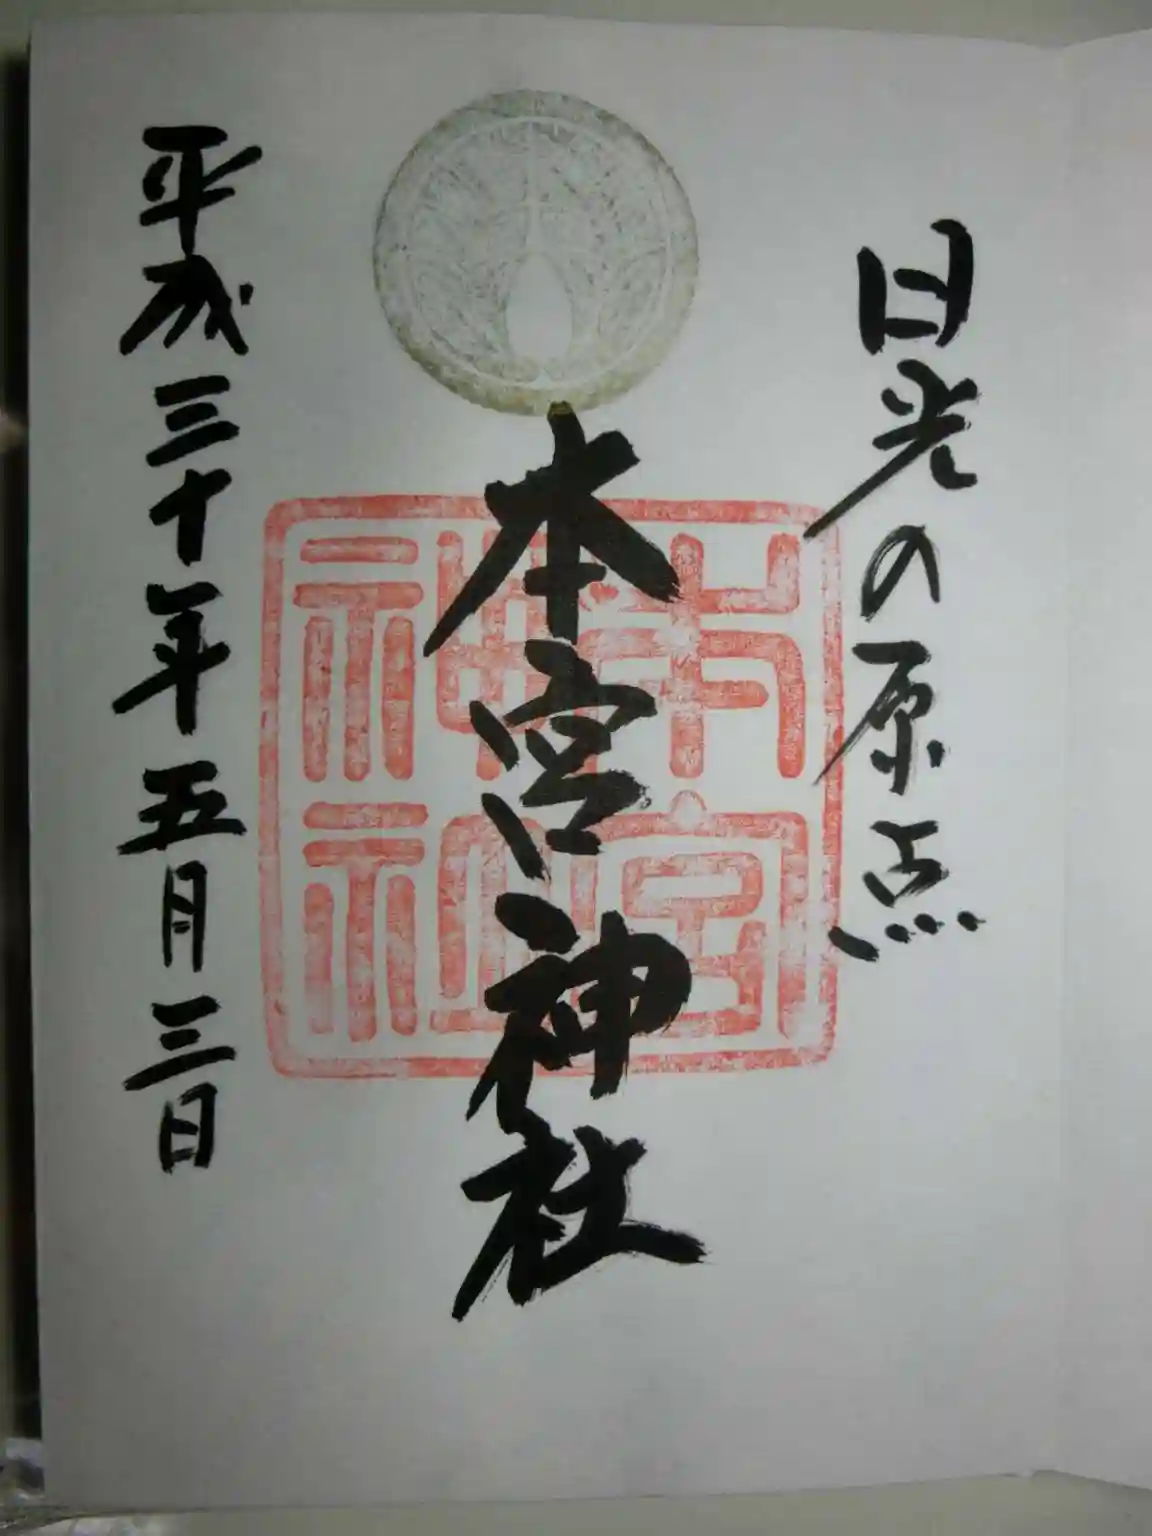 日光の原点
本宮神社
本宮
神社
平成三十年五月三日